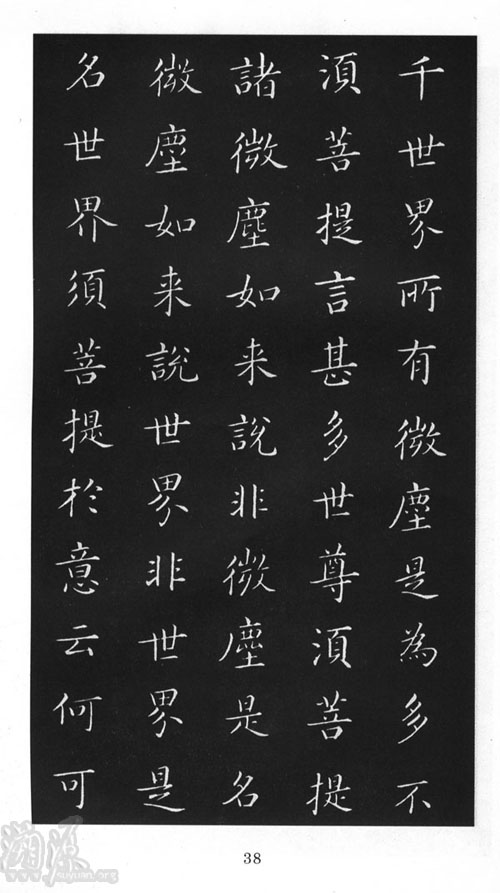 千世界所有微塵是為多不
須菩提言甚多世尊須菩提
諸微塵如来說非微塵是名
微塵如来說世界非世界是
名世界須菩提於意云何可
溯源
suyuan.org
38